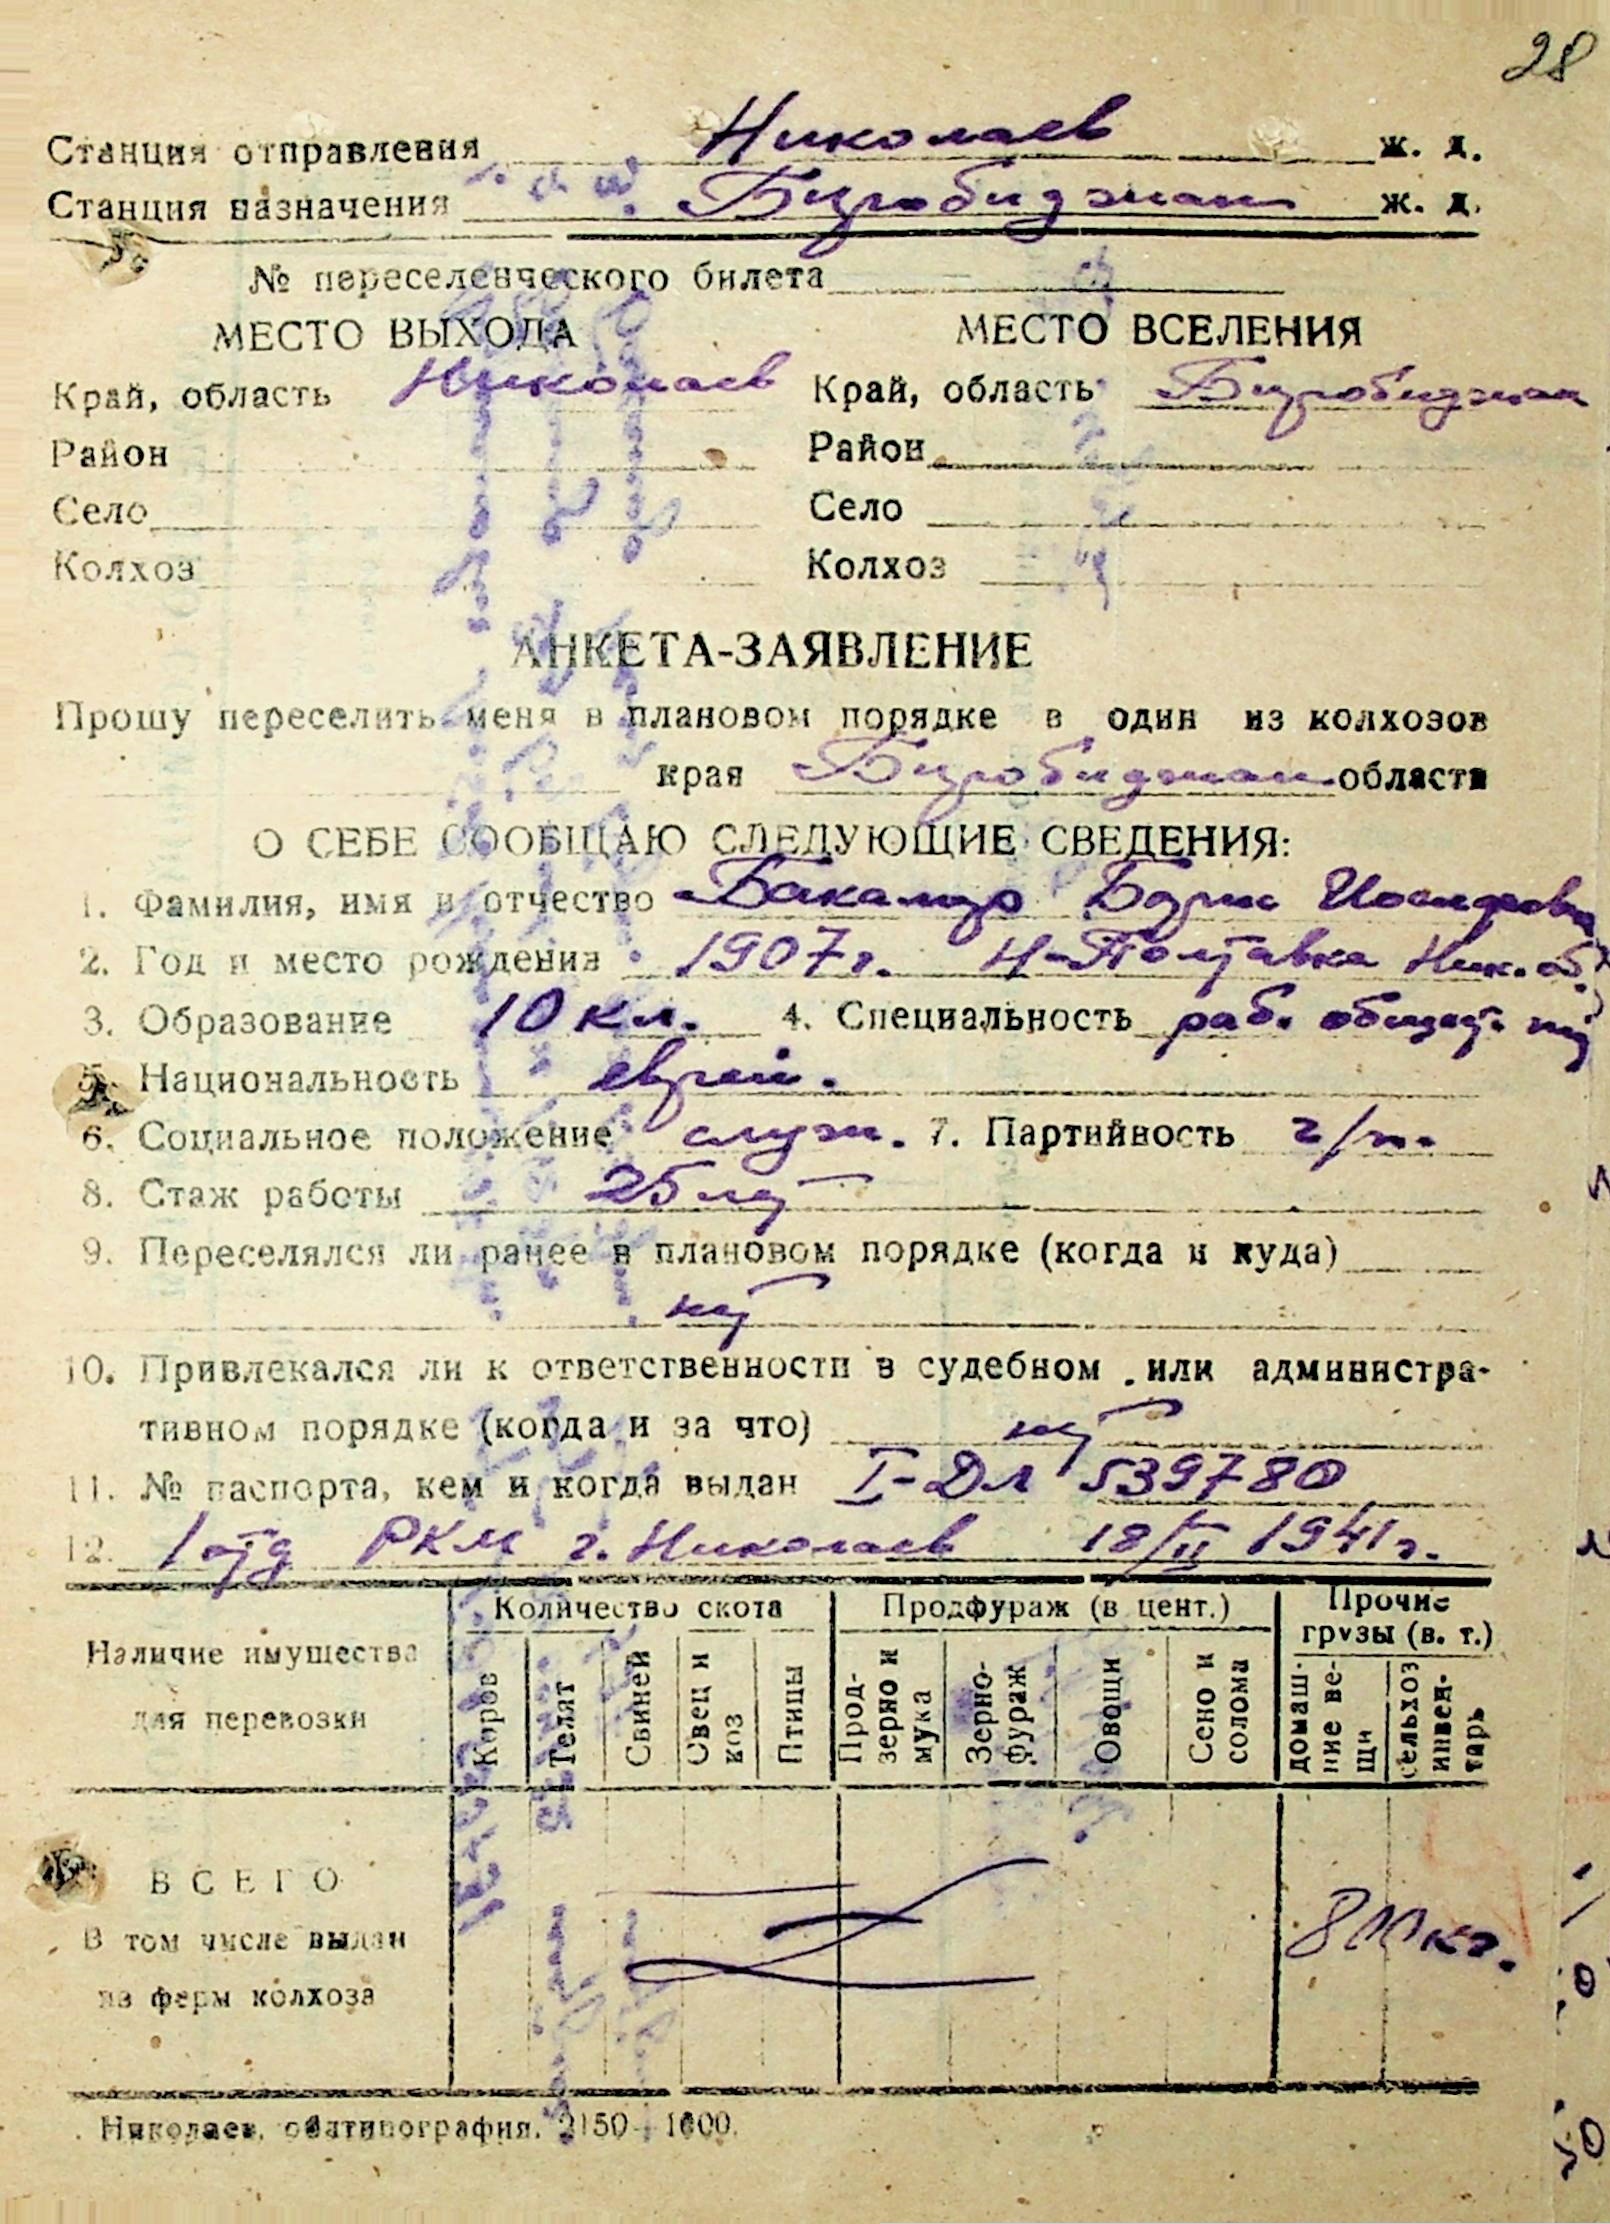 28
Станция отправления Николаев ж. д.
Станция назначения Биробиджан ж. д.
№ переселенческого билета
МЕСТО ВЫХОДА МЕСТО ВСЕЛЕНИЯ
Край, область Николаев Край, область Биробиджан
Район Район
Село Село
Колхоз Колхоз
АНКЕТА-ЗАЯВЛЕНИЕ
Прошу переселить меня в плановом порядке в один из колхозов
края Биробиджан области
О СЕБЕ СООБЩАЮ СЛЕДУЮЩИЕ СВЕДЕНИЯ:
1. Фамилия, имя и отчество Борис Иосифович
2. Год и место рождения 1907 г. Н-Полтавка Ник. об.
3. Образование 10 кл. 4. Специальность раб. общест. пит
5. Национальность еврей.
6. Социальное положение служ. 7. Партийность
8. Стаж работы 25 лет
9. Переселялся ли ранее в плановом порядке (когда и куда)
нет
10. Привлекался ли к ответственности в судебном или администра-
тивном порядке (когда и за что) нет
11. № паспорта, кем и когда выдан I-ДЛ 539780
12. 1 отд РКМ г. Николаев 18/II 1941 г.
Наличие имущества для перевозки
Количество скота Продфураж (в цент.) Прочие грузы (в. т.)
Коров Телят Свиней Овец и коз Птицы Прод-зерно и мука Зерно-фураж Овощи Сено и солома домаш-ние ве-щи сельхоз инвен-тарь
ВСЕГО
800 кг.
В том числе выдан
из ферм колхоза
Николаев, облтипография. 2150—1000.